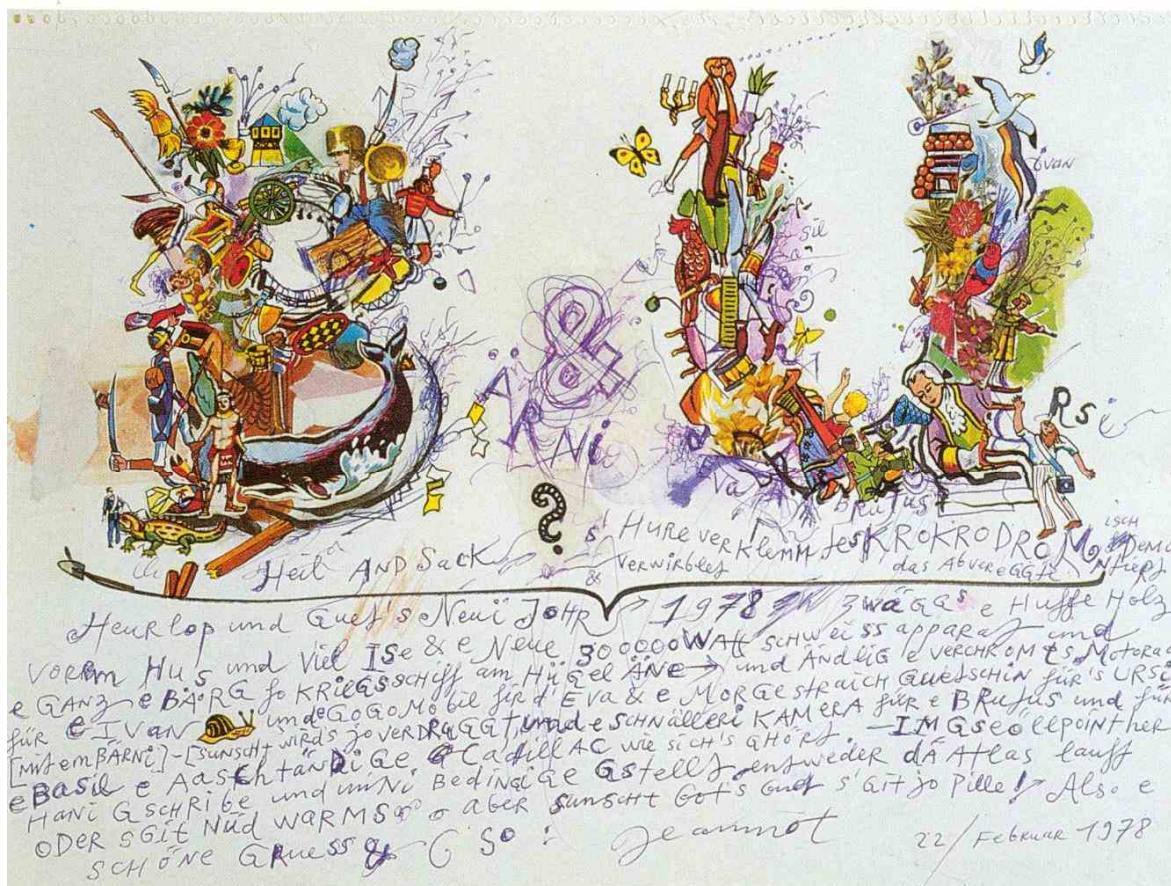 &
ÄRNi
sil
ivan
Rsi
va
BRUTUS
?
Heil AND Sack
s' HUREVERKlemmtes KROKRODROM
verwirbles
das ABvereGGte
Heurlop und Guet's Neui Johr 1978 zwäGGs e Huffe Holz
vorem Hus und viel ISe & e Neue 300000WAtt schweissapparat und
e GANZ e BÄRG so KRiEGSschiff am Hügel ÄNE → und ÄNDLiG e verchromts Motorad
für e Ivan und e GoGoMobil für d'Eva & e MORGestraich Guetschin für's URSi
[mit em BÄRNi]-[sunscht wird's jo verdRuGGt, und e schnälleri KAMERA für e BRutus und für
e Basil e AAschtändige CadillAC wie sich's ghört. -IM
HANi Gschribe und mini Bedingige Gstellt entweder dä Atlas lauft
ODER SGit Nüd WARMS aber sunscht Got's Guet s'Git jo Pille! Also e
SCHÖNE GRUESS & so:
Jeannot
22/Februar 1978